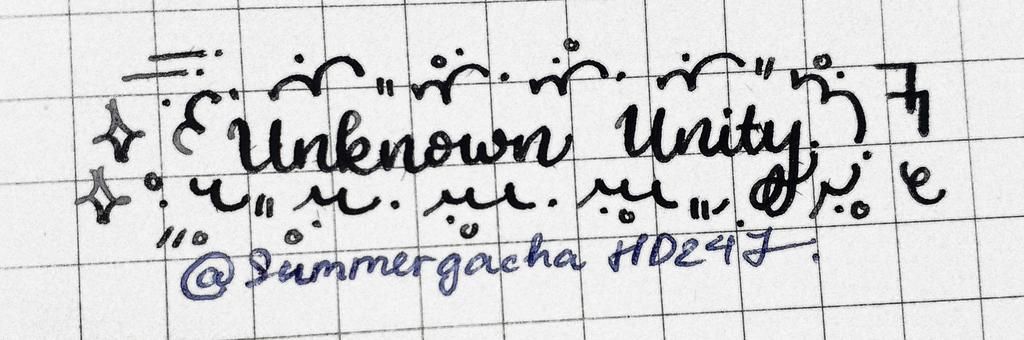 Unknown Unity
@Summergacha HD24J